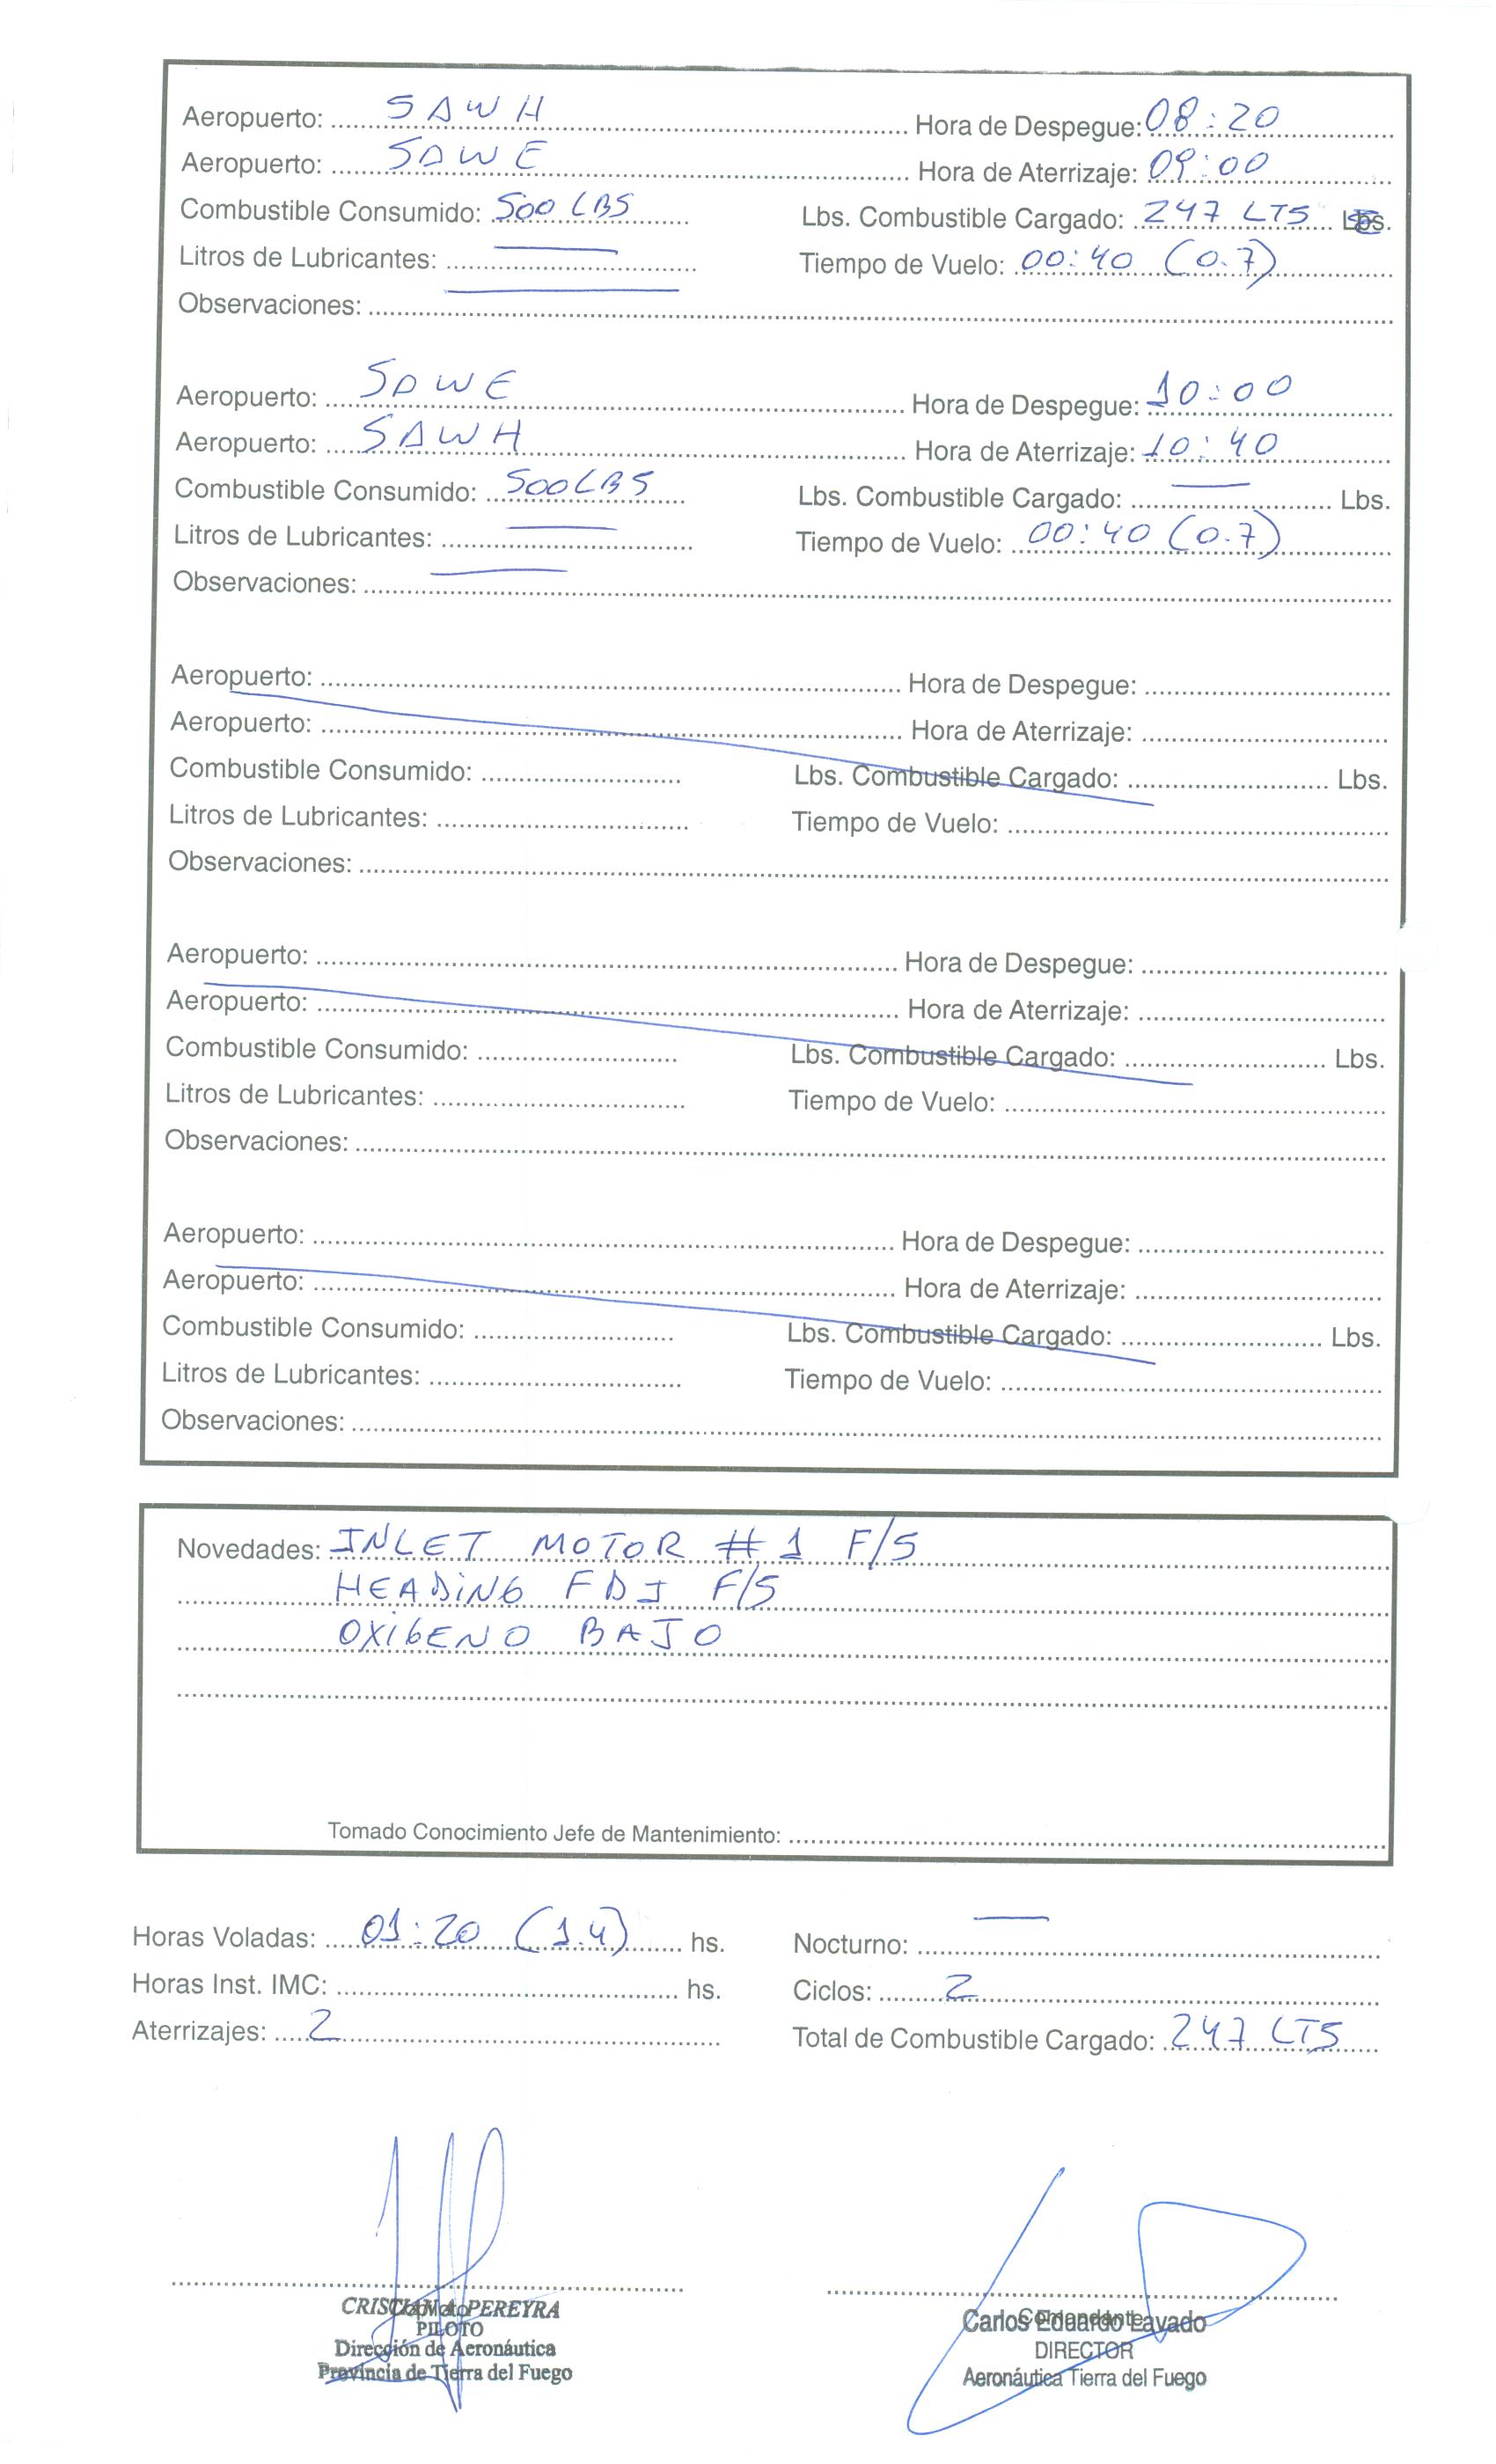 Aeropuerto: SAWH Hora de Despegue: 08:20
Aeropuerto: SAWE Hora de Aterrizaje: 09:00
Combustible Consumido: 500 LBS Lbs. Combustible Cargado: 247 LTS Lbs.
Litros de Lubricantes: — Tiempo de Vuelo: 00:40 (0.7)
Observaciones: —
Aeropuerto: SAWE Hora de Despegue: 10:00
Aeropuerto: SAWH Hora de Aterrizaje: 10:40
Combustible Consumido: 500 LBS Lbs. Combustible Cargado: — Lbs.
Litros de Lubricantes: — Tiempo de Vuelo: 00:40 (0.7)
Observaciones: —
Aeropuerto: Hora de Despegue:
Aeropuerto: Hora de Aterrizaje:
Combustible Consumido: Lbs. Combustible Cargado: Lbs.
Litros de Lubricantes: Tiempo de Vuelo:
Observaciones:
Aeropuerto: Hora de Despegue:
Aeropuerto: Hora de Aterrizaje:
Combustible Consumido: Lbs. Combustible Cargado: Lbs.
Litros de Lubricantes: Tiempo de Vuelo:
Observaciones:
Aeropuerto: Hora de Despegue:
Aeropuerto: Hora de Aterrizaje:
Combustible Consumido: Lbs. Combustible Cargado: Lbs.
Litros de Lubricantes: Tiempo de Vuelo:
Observaciones:
Novedades: INLET MOTOR #1 F/S
HEADING FDI F/S
OXIGENO BAJO
Tomado Conocimiento Jefe de Mantenimiento:
Horas Voladas: 01:20 (1.4) hs. Nocturno: —
Horas Inst. IMC: hs. Ciclos: 2
Aterrizajes: 2 Total de Combustible Cargado: 247 LTS
CRISTIAN PEREYRA
PILOTO
Dirección de Aeronáutica
Provincia de Tierra del Fuego
Comandante
Carlos Eduardo Lavado
DIRECTOR
Aeronáutica Tierra del Fuego